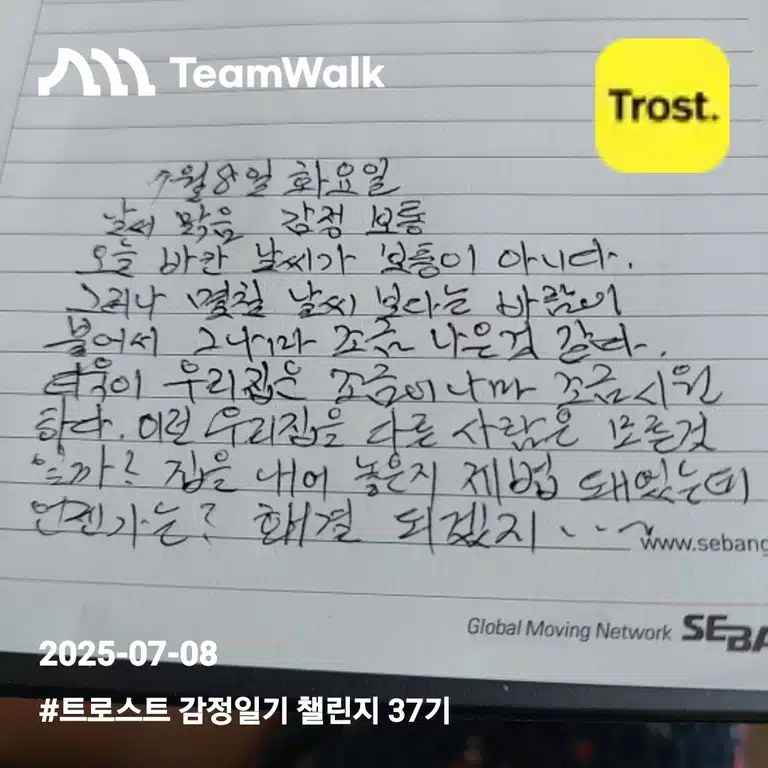 TeamWalk
Trost.
7월8일 화요일
날씨 맑음 감정 보통
오늘 바깐 날씨가 보통이 아니다.
그러나 몇칠 날씨 보다는 바람이
불어서 그나마 조금 나은것 같다.
더욱이 우리집은 조금이나마 조금시원
하다. 이런 우리집을 다른 사람은 모른것
일까? 집을 내어 놓은지 제법 돼있는데
언젠가는? 해결 되겠지...~
www.sebang
Global Moving Network SEBA
2025-07-08
#트로스트 감정일기 챌린지 37기